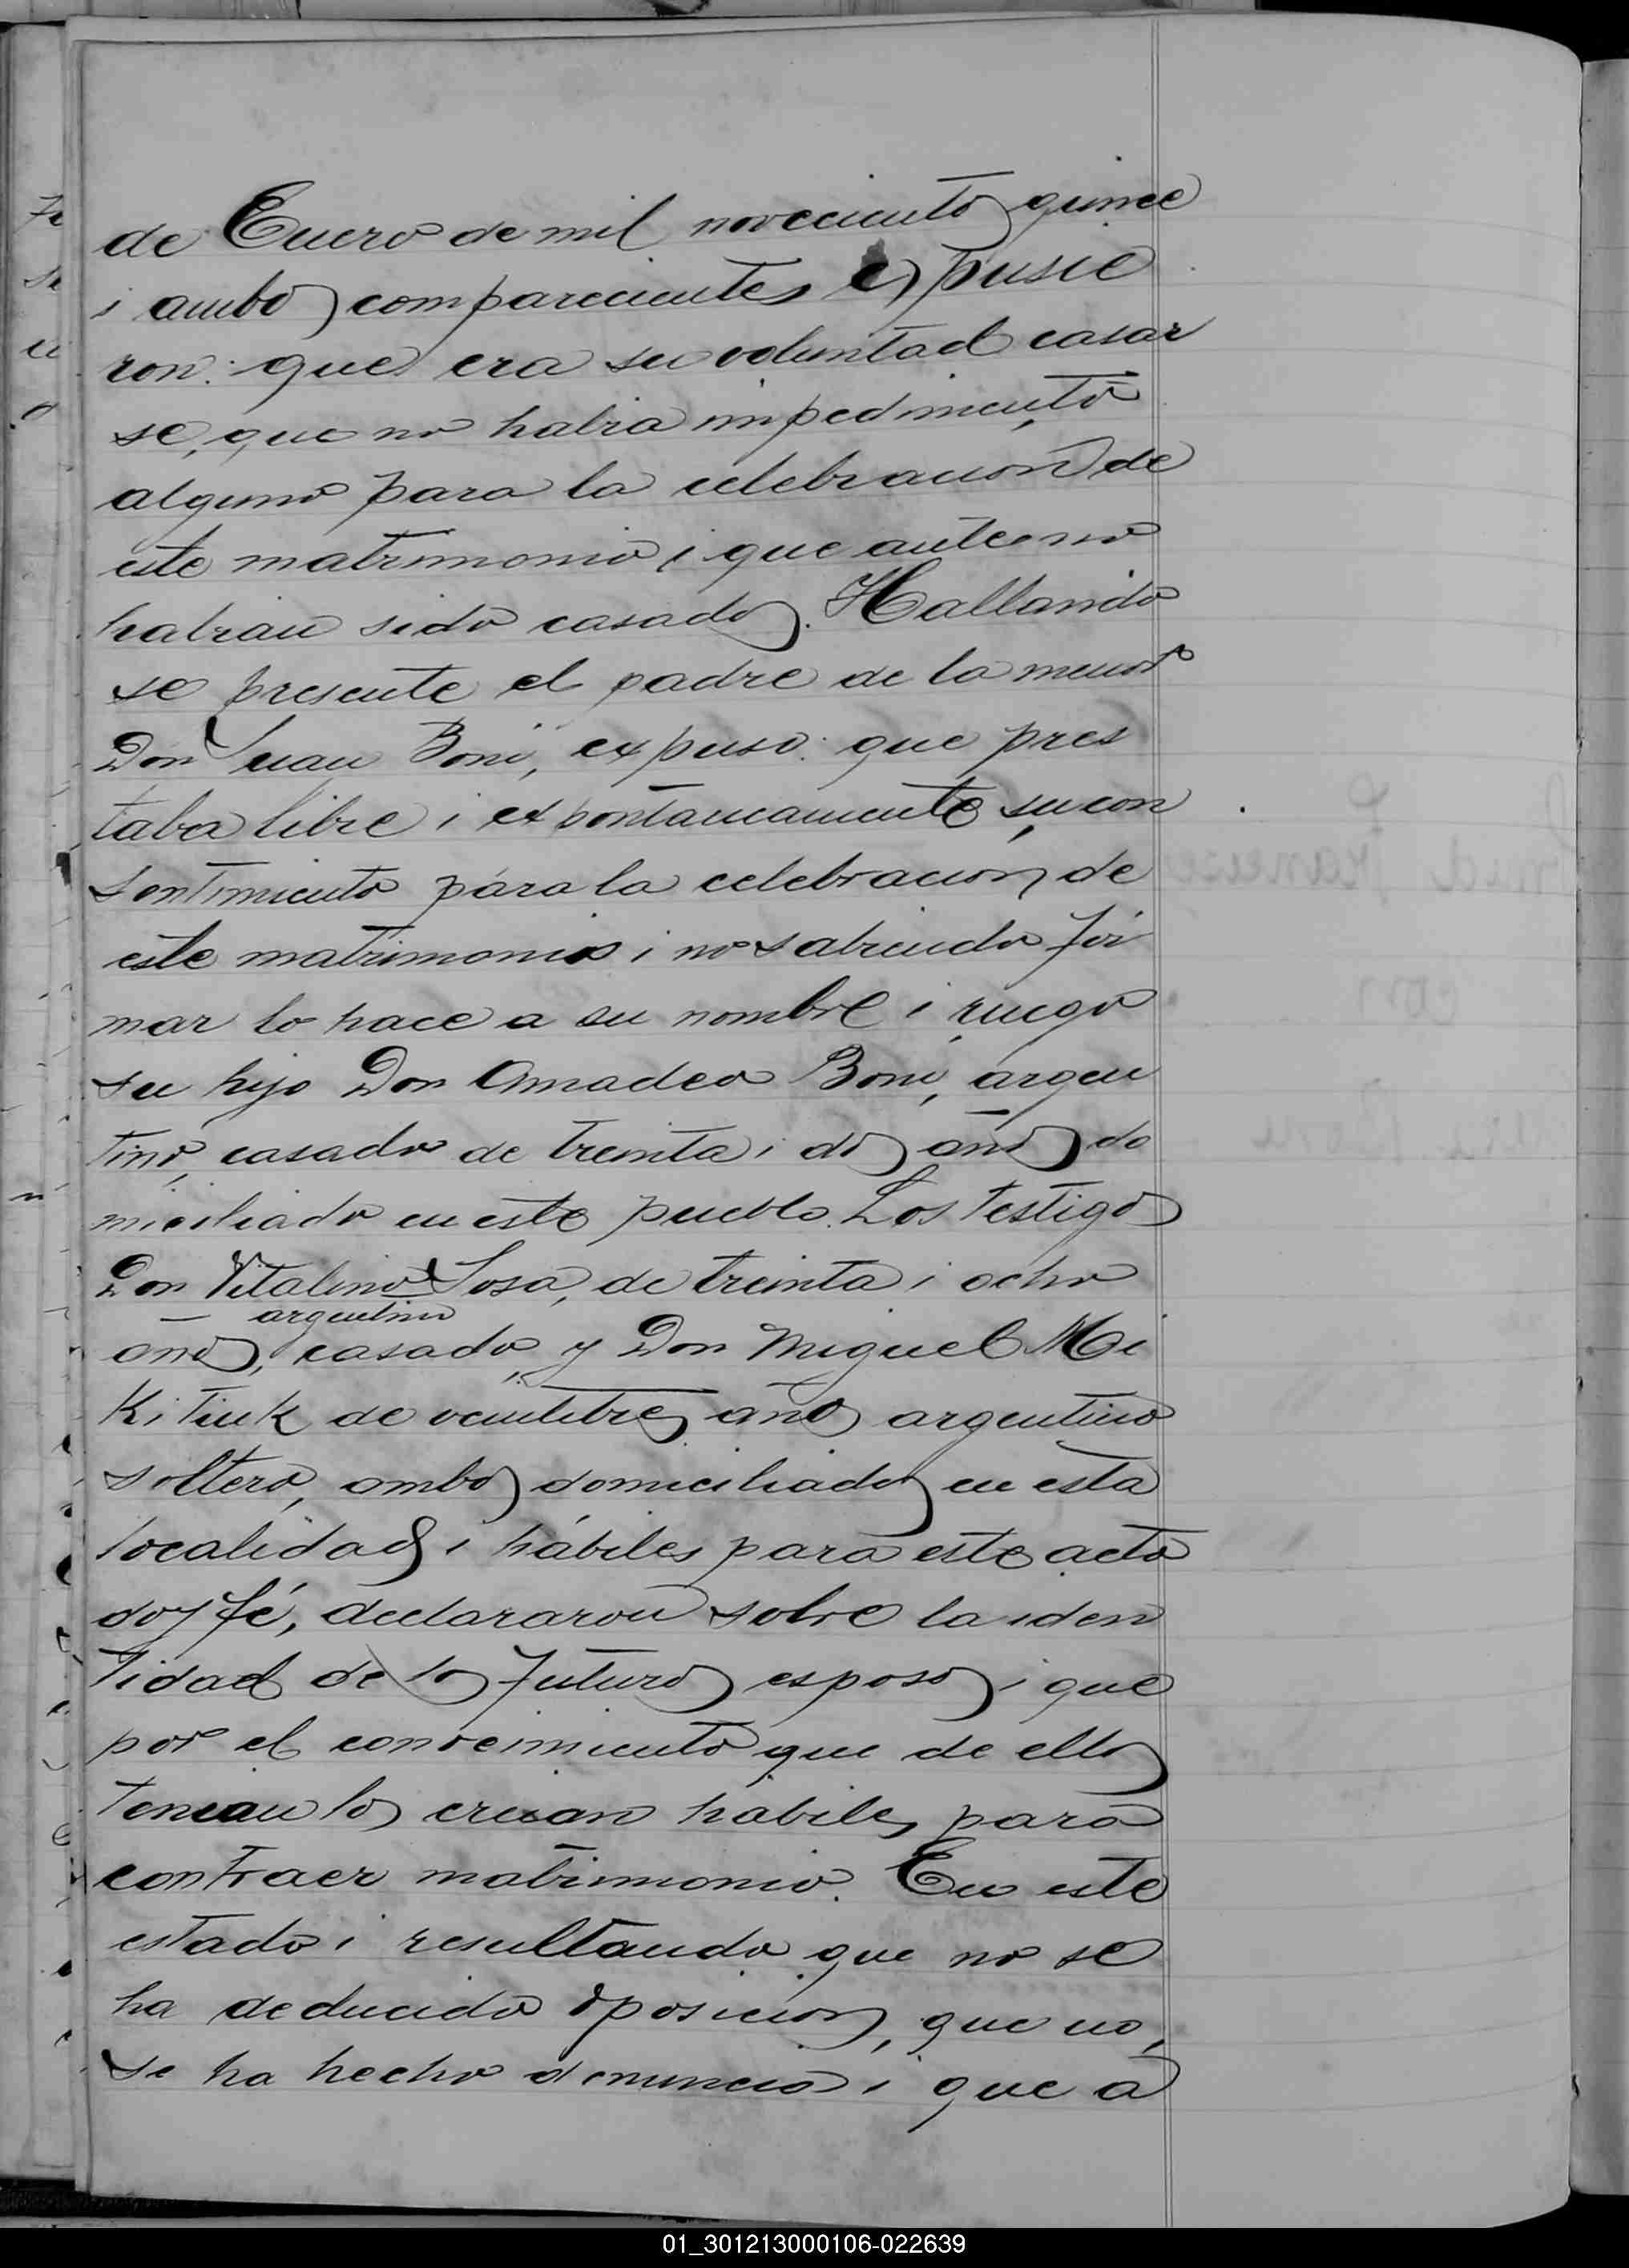 de Enero de mil novecientos quince
i ambos comparecientes expusie
ron: que era su voluntad casar
se, que no habia impedimento
alguno para la celebracion de
este matrimonio i que antes no
habian sido casados. Hallando
se presente el padre de la menor
Don Juan Boni, expuso: que pres
taba libre i expontaneamente su con
sentimiento para la celebracion de
este matrimonio i no sabiendo fir
mar lo hace a su nombre i ruego
su hijo Don Amadeo Boni, argen
tino, casado de treinta i dos años do
miciliado en este pueblo. Los testigos
Don Vitalino Sosa, de treinta i ocho
argentino
años, casado, y Don Miguel Mi
Kitiuk de veintitres años argentino
soltero, ambos domiciliados en esta
localidad i hábiles para este acto
doy fé, declararon sobre la iden
tidad de los futuros esposos i que
por el conocimiento que de ellos
tenian los creian habiles para
contraer matrimonio. En este
estado i resultando que no se
ha deducido oposicion, que no,
se ha hecho denuncia i que a
01_301213000106-022639